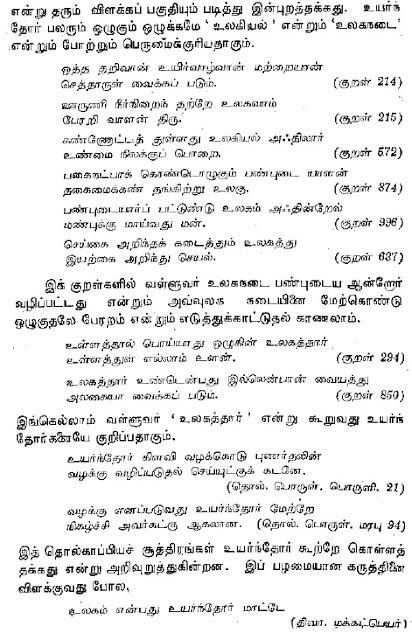 என்று தரும் விளக்கப் பகுதியும் படித்து இன்புறத்தக்கது. உயர்ந்
தோர் பலரும் ஒழுகும் ஒழுக்கமே ‘ உலகியல் ’ என்றும் ‘உலகநடை’
என்றும் போற்றும் பெருமைக்குரியதாகும்.
ஒத்த தறிவான் உயிர்வாழ்வான் மற்றையான்
செத்தாருள் வைக்கப் படும். (குறள் 214)
ஊருணி நீர்நிறைந் தற்றே உலகவாம்
பேரறி வாளன் திரு. (குறள் 215)
கண்ணோட்டத் துள்ளது உலகியல் அஃதிலார்
உண்மை நிலக்குப் பொறை. (குறள் 572)
பகைநட்பாக் கொண்டொழுகும் பண்புடை யாளன்
தகைமைக்கண் தங்கிற்று உலகு. (குறள் 874)
பண்புடையார்ப் பட்டுண்டு உலகம் அஃதின்றேல்
மண்புக்கு மாய்வது மன். (குறள் 996)
செய்கை அறிந்தக் கடைத்தும் உலகத்து
இயற்கை அறிந்து செயல். (குறள் 637)
இக் குறள்களில் வள்ளுவர் உலகநடை பண்புடைய ஆன்றோர்
வழிப்பட்டது என்றும் அவ்வுலக நடையினை மேற்கொண்டு
ஒழுகுதலே பேரறம் என்றும் எடுத்துக்காட்டுதல் காணலாம்.
உள்ளத்தால் பொய்யாது ஒழுகின் உலகத்தார்
உள்ளத்துள் எல்லாம் உளன். (குறள் 294)
உலகத்தார் உண்டென்பது இல்லென்பான் வையத்து
அலகையா வைக்கப் படும். (குறள் 850)
இங்கெல்லாம் வள்ளுவர் ‘ உலகத்தார் ’ என்று கூறுவது உயர்ந்
தோர்களையே குறிப்பதாகும்.
உயர்ந்தோர் கிளவி வழக்கொடு புணர்தலின்
வழக்கு வழிப்படுதல் செய்யுட்குக் கடனே.
(தொல். பொருள். பொருளி. 21)
வழக்கு எனப்படுவது உயர்ந்தோர் மேற்றே
நிகழ்ச்சி அவர்கட்கு ஆகலான. (தொல். பொருள். மரபு 94)
இத் தொல்காப்பியச் சூத்திரங்கள் உயர்ந்தோர் கூற்றே கொள்ளத்
தக்கது என்று அறிவுறுத்துகின்றன. இப் பழமையான கருத்தினை
விளக்குவது போல,
உலகம் என்பது உயர்ந்தோர் மாட்டே
(திவா. மக்கட்பெயர்)